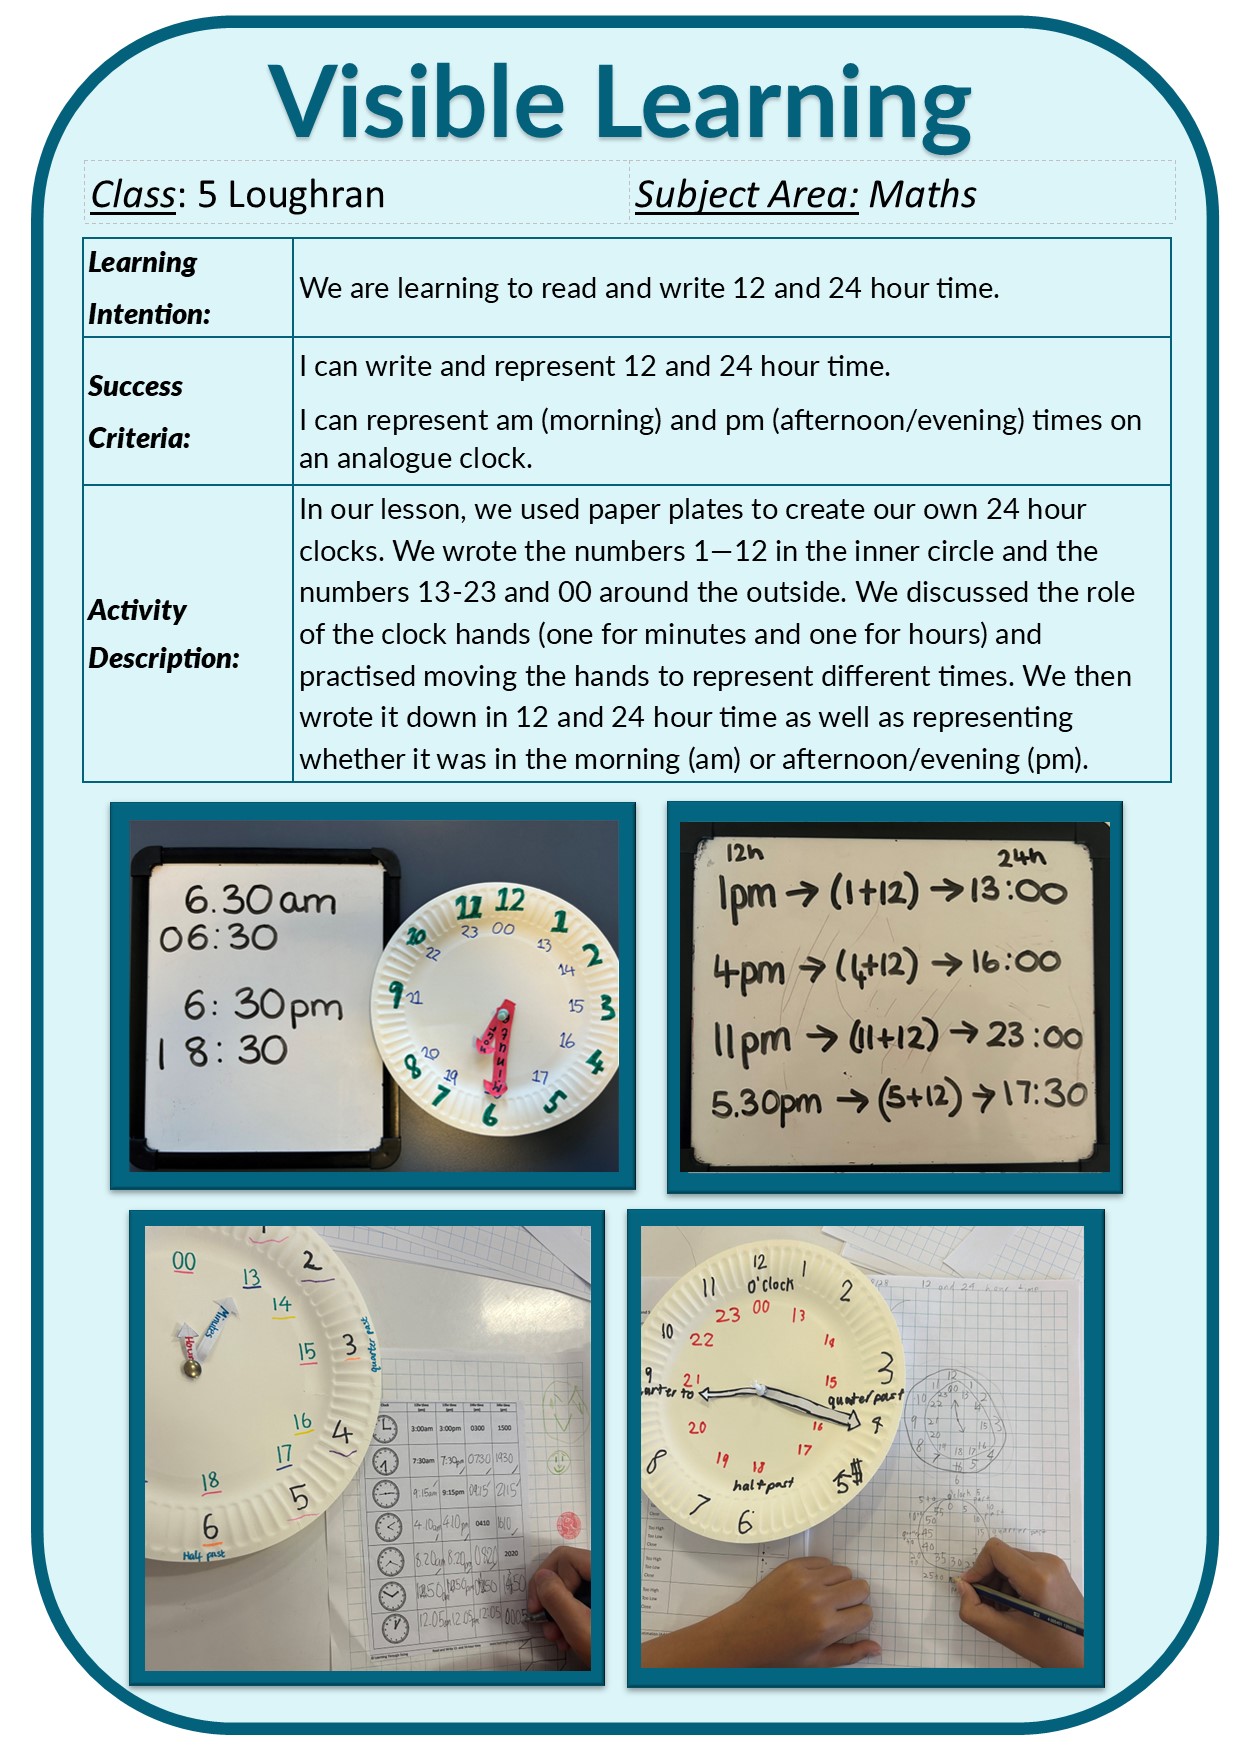 Visible Learning
Class: 5 Loughran
Subject Area: Maths
Learning
Intention:
We are learning to read and write 12 and 24 hour time.
Success
Criteria:
I can write and represent 12 and 24 hour time.
I can represent am (morning) and pm (afternoon/evening) times on
an analogue clock.
Activity
Description:
In our lesson, we used paper plates to create our own 24 hour
clocks. We wrote the numbers 1—12 in the inner circle and the
numbers 13-23 and 00 around the outside. We discussed the role
of the clock hands (one for minutes and one for hours) and
practised moving the hands to represent different times. We then
wrote it down in 12 and 24 hour time as well as representing
whether it was in the morning (am) or afternoon/evening (pm).
6.30am
06:30
6:30pm
18:30
11 12 1
10 23 00 13 2
22 14
9 21 15 3
20 16
8 19 17 4
7 6 5
minute
hour
12h 24h
1pm → (1+12) → 13:00
4pm → (4+12) → 16:00
11pm → (11+12) → 23:00
5.30pm → (5+12) → 17:30
1
00 2
13
14
Minutes
Hour
15 3 quarter past
16 4
17
18 5
6
Half past
3:00am 3:00pm 0300 1500
7:30am 7:30pm 0730 1930
9:15am 9:15pm 0915 2115
4.10am 4.10pm 0410 1610
8.20am 8.20pm 0820 2020
12 and 24 hour time
12 1
11 o'clock 2
23 00 13
10 22 14
9 21 15 3
quarter past
20 16 4
19 18 17
8 half past 5
7 6